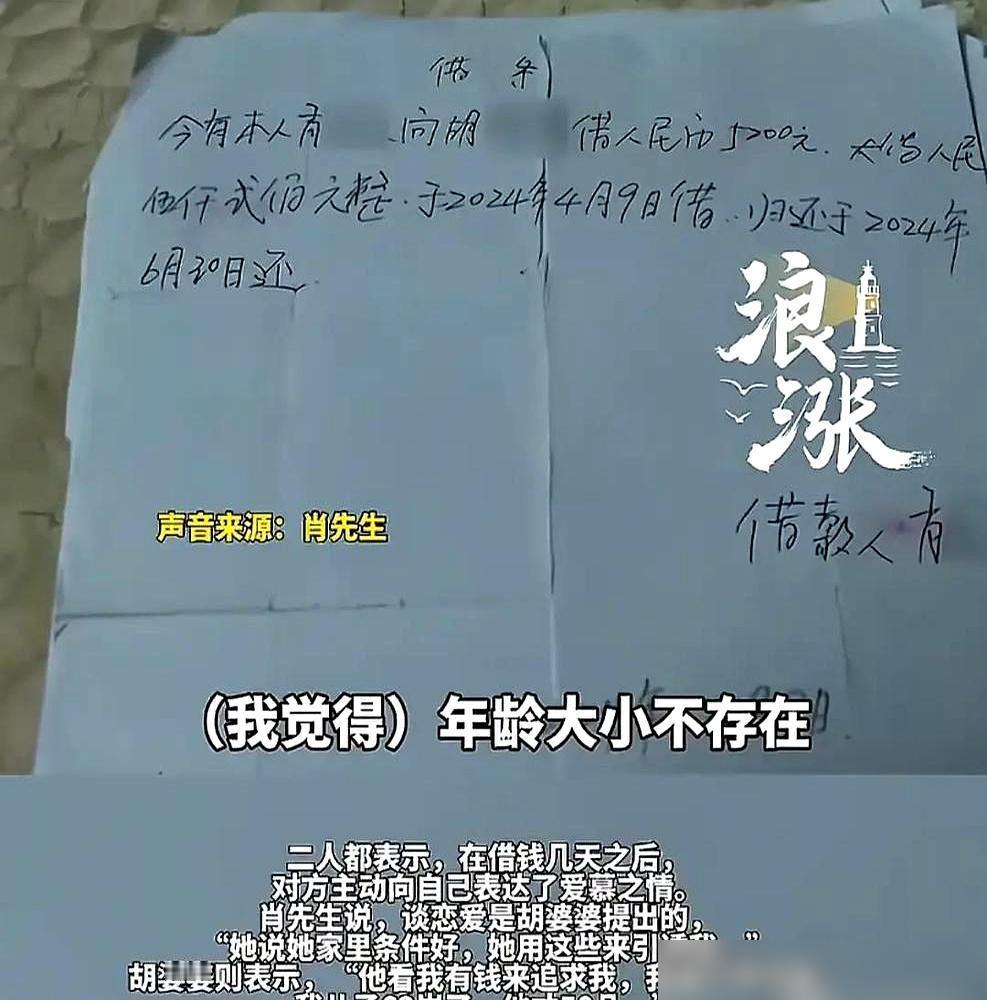 借条
今有本人肖 向胡 借人民币5200元. 大借人民
伍仟弍佰元整.于2024年4月9日借.归还于2024年
6月30日还.
浪
涨
声音来源：肖先生
借款人肖
（我觉得）年龄大小不存在
二人都表示，在借钱几天之后，
对方主动向自己表达了爱慕之情。
肖先生说，谈恋爱是胡婆婆提出的，
“她说她家里条件好，她用这些来引
胡婆婆则表示，“他看我有钱来追求我，